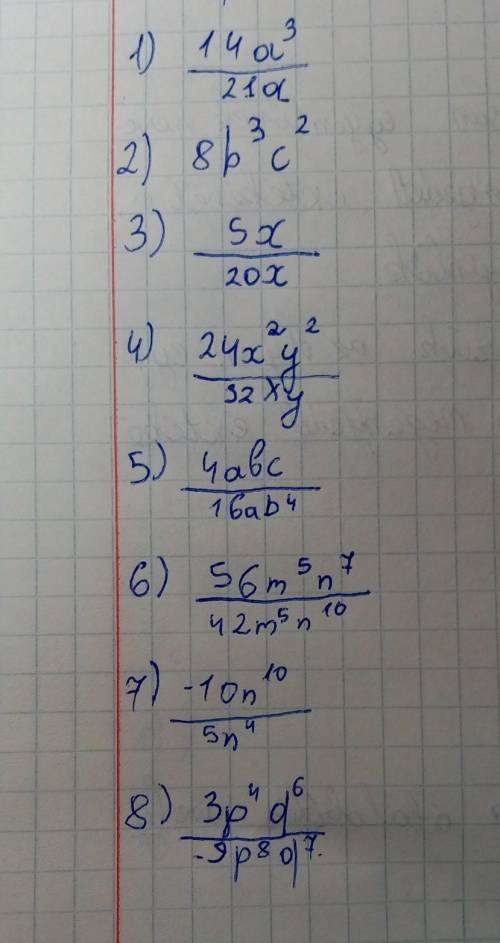 1) 14a³
21a
2) 8b³c²
3) 5x
20x
4) 24x²y²
32xy
5) 4abc
16ab⁴
6) 56m⁵n⁷
42m⁵n¹⁰
7) -10n¹⁰
5n⁴
8) 3p⁴q⁶
-9p⁸q⁷